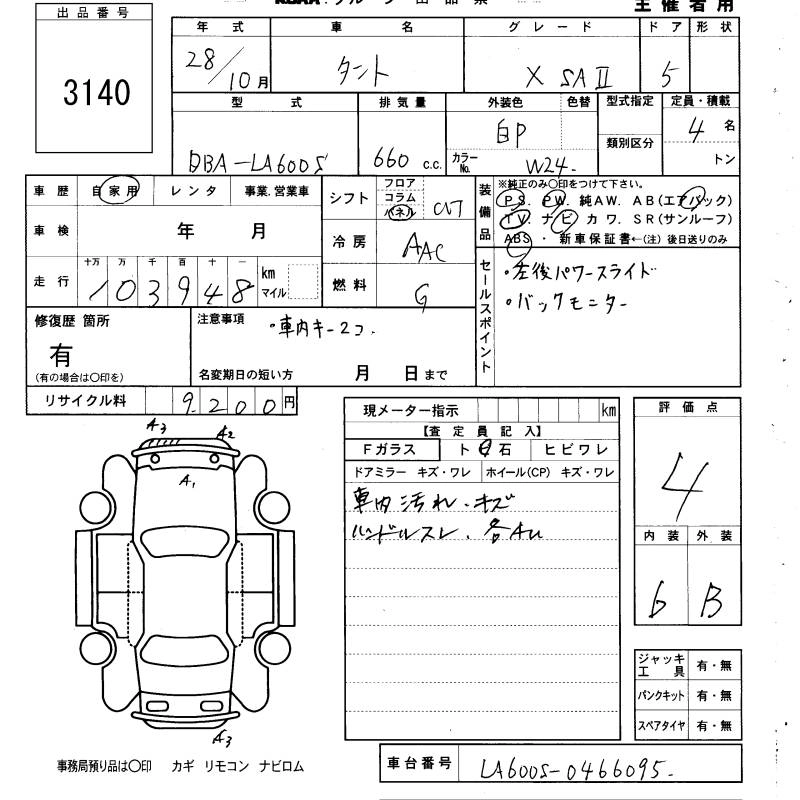 主催者用
出品番号
3140
年式 車名 グレード ドア 形状
28/10月 タント X SAⅡ 5
型式 排気量 外装色 色替 型式指定 定員・積載
類別区分
DBA-LA600S 660 c.c. 白P カラーNo. W24. 4名
トン
車歴 自家用 レンタ 事業.営業車
車検 年 月
走行 十万 万 千 百 十 一
103948 km マイル
シフト フロア コラム パネル CVT
冷房 AAC
燃料 G
装備品 ※純正のみ〇印をつけて下さい。
PS. PW. 純AW. AB(エアバック)
TV. ナビ カワ. SR(サンルーフ)
ABS ・ 新車保証書←(注) 後日送りのみ
セールスポイント
・左後パワースライド
・バックモニター
修復歴 箇所
有
(有の場合は〇印を)
注意事項
・車内キー2コ.
名変期日の短い方 月 日まで
リサイクル料 9,200円
現メーター指示 km
【査定員記入】
Fガラス ト 石 ヒビワレ
ドアミラー キズ・ワレ ホイール(CP) キズ・ワレ
車内汚れ.キズ
ハンドルスレ. 各AU
評価点
4
内装 外装
6 B
A3 A2
A1
A3
ジャッキ工具 有・無
パンクキット 有・無
スペアタイヤ 有・無
事務局預り品は〇印 カギ リモコン ナビロム
車台番号 LA600S-0466095.